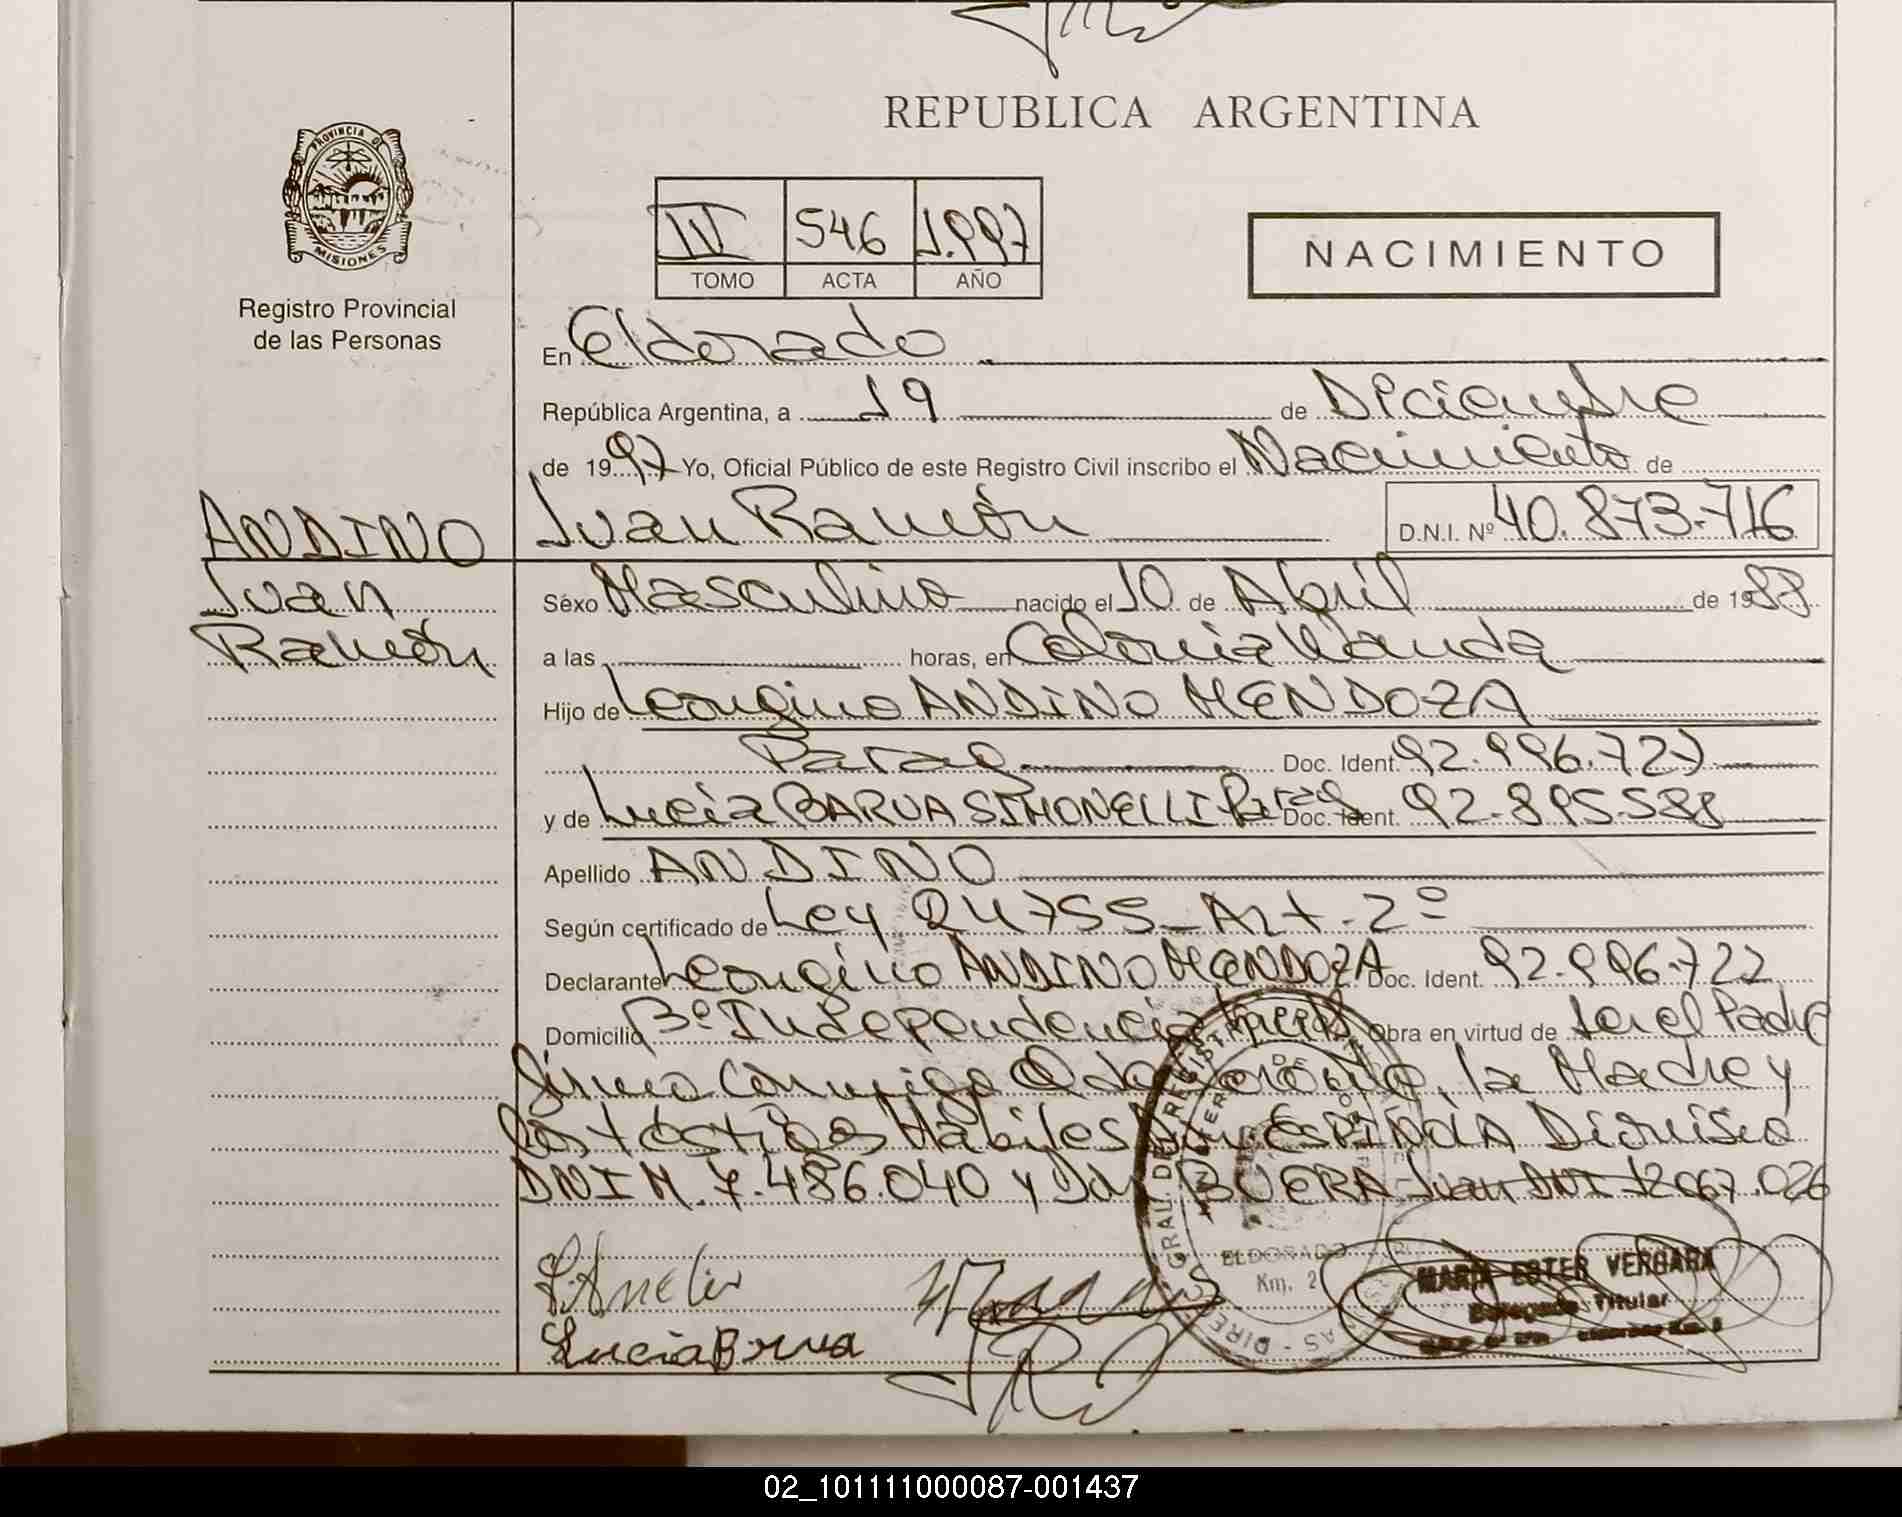 REPUBLICA ARGENTINA
PROVINCIA DE
MISIONES
Registro Provincial
de las Personas
IV 546 1.997
TOMO ACTA AÑO
NACIMIENTO
En Eldorado
República Argentina, a 19 de Diciembre
de 1997 Yo, Oficial Público de este Registro Civil inscribo el Nacimiento de
ANDINO
Juan
Ramón
Juan Ramón D.N.I. Nº 40.873.716
Sexo Masculino nacido el 10 de Abril de 1988
a las horas, en Colonia Wanda
Hijo de Leongino ANDINO MENDOZA
Parag Doc. Ident. 92.996.727
y de Lucia BARUA SIMONELLI Parag Doc. Ident. 92.895.588
Apellido ANDINO
Según certificado de Ley 24755 - Art. 2º
Declarante Leongino ANDINO MENDOZA Doc. Ident. 92.996.722
Domicilio Bº Independencia Obra en virtud de ser el Padre
firma conmigo la Madre y
los testigos Hábiles ESPINOLA Dionisio
DNI M. 7.486.040 y Don BUERA Juan DNI 12067.026
Lucia Brua
ELDORADO
Km. 2
MARIA ESTER VERGARA
Delegada Titular
02_101111000087-001437